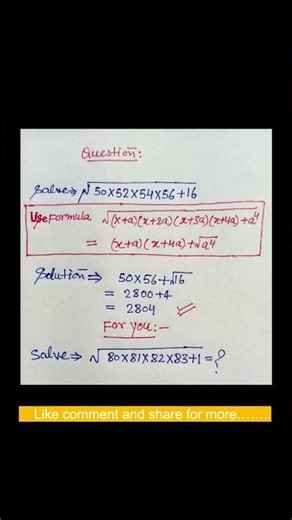 Question:
Solve⇒ √50×52×54×56+16
Use Formula √(x+a)(x+2a)(x+3a)(x+4a)+a⁴
= (x+a)(x+4a)+√a⁴
Solution ⇒ 50×56+√16
= 2800+4
= 2804
For you:-
Solve⇒ √80×81×82×83+1 = ?
Like comment and share for more........